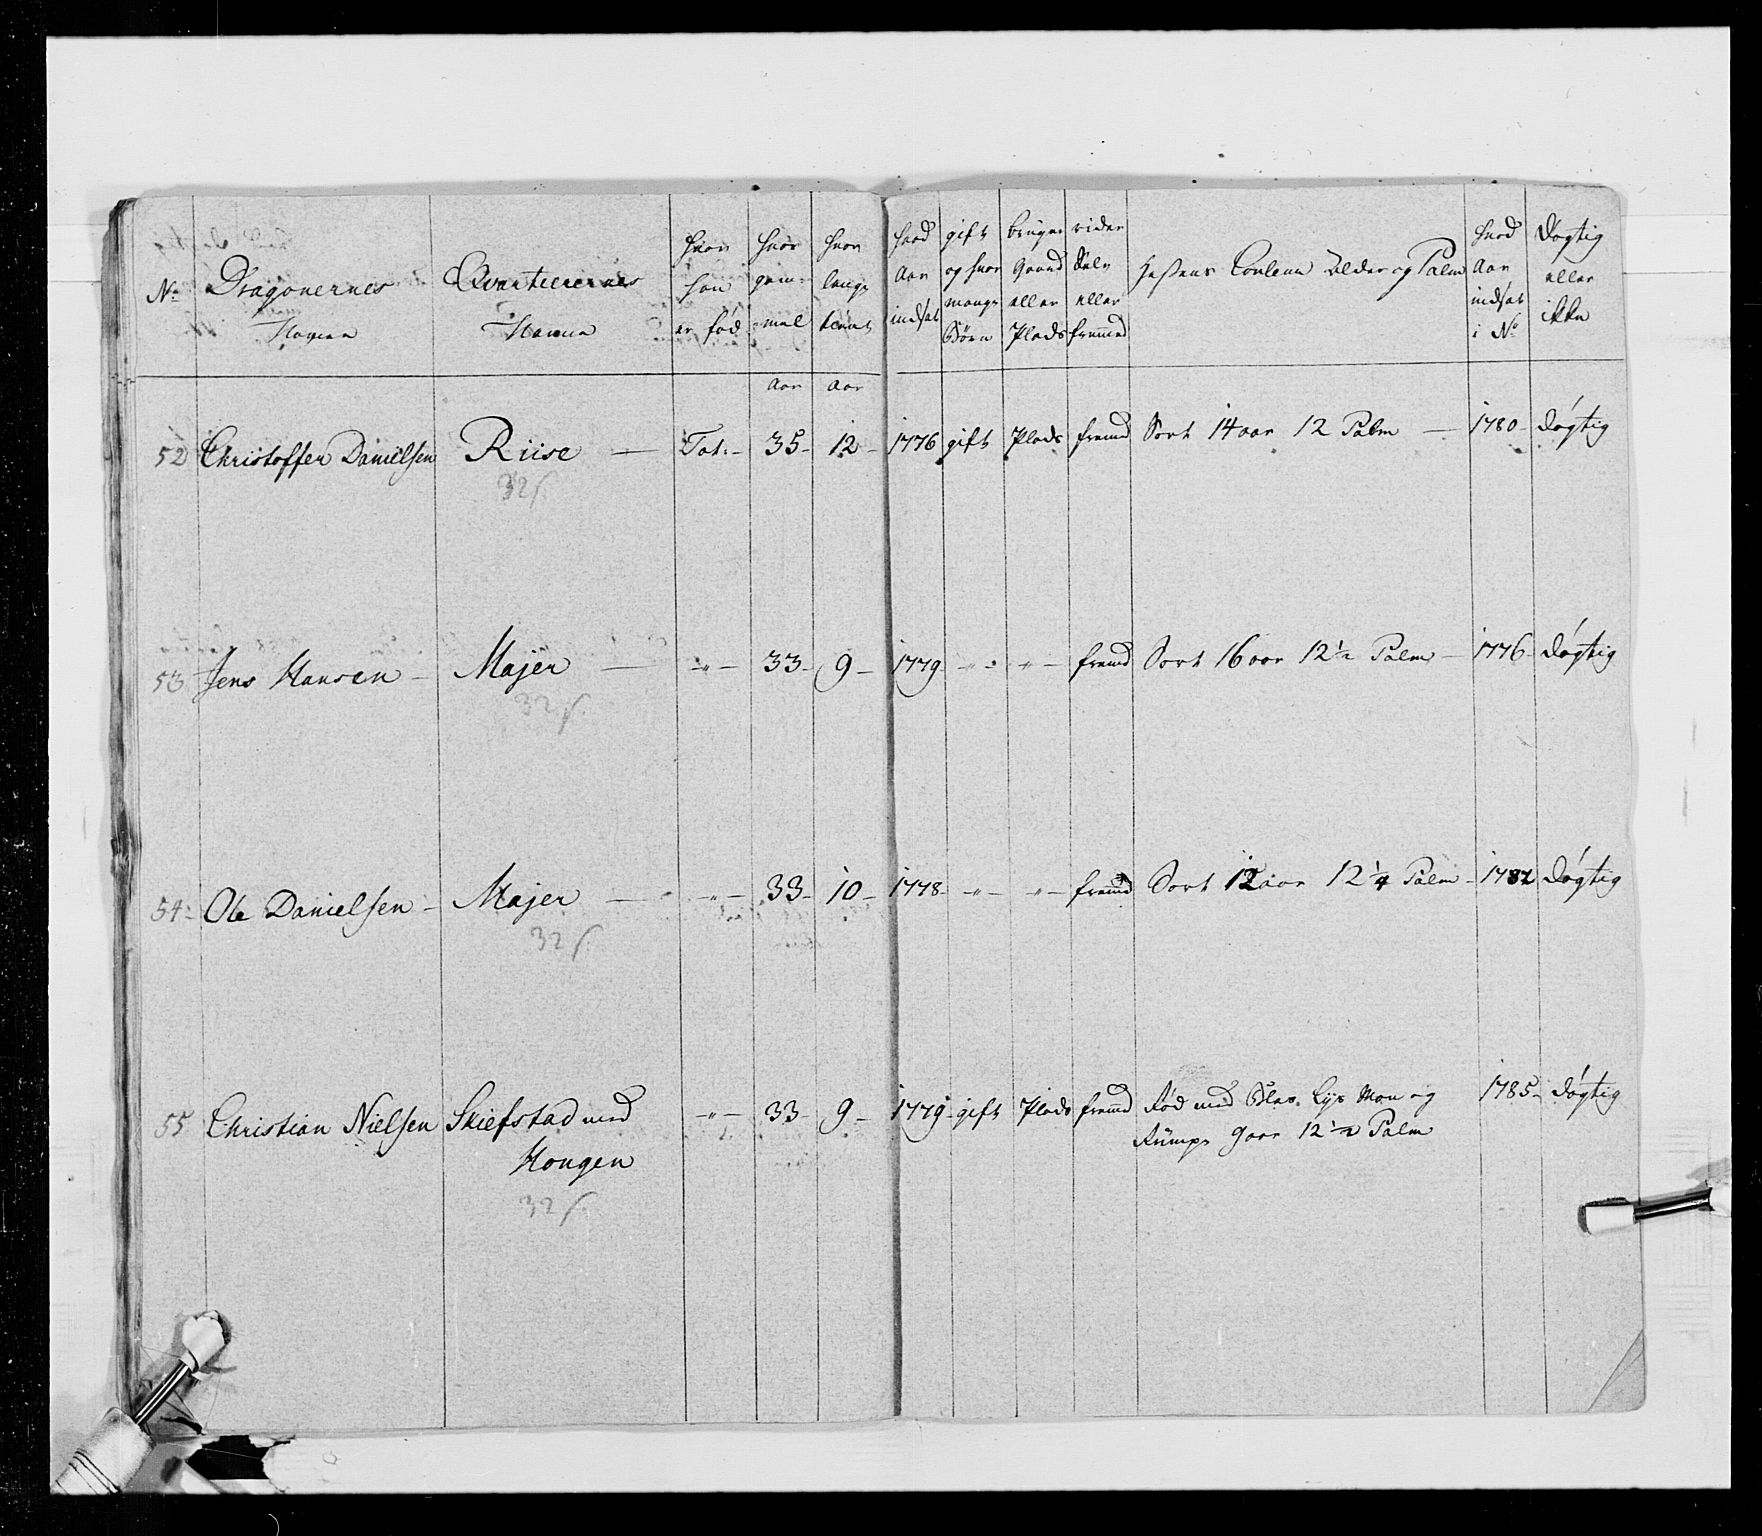 No
Dragonernes
Navne
Qvarterernes
Navne
hvor
han
er fød
hvor
gam-
mel
hvor
lenge
tient
hvad
Aar
indsat
gift
og hvor
mange
Børn
bruger
Gaard
eller
Plads
rider
Selv
eller
fremed
Hestens Couleur Alder og Palm
hvad
Aar
indsat
i No
Døgtig
eller
ikke
Aar Aar
52 Christoffer Danielsen Riise — Tot: - 35 - 12 - 1776 gift Plads fremd Sort 14 aar 12 Palm — 1780 Døgtig
32 ſ.
53 Jens Hansen - Majer — -"- 33 - 9 - 1779 -"- -"- fremd Sort 16 aar 12 1/2 Palm - 1776 - Døgtig
32 ſ.
54 - Ole Danielsen - Majer — -"- 33 - 10 - 1778 - -"- -"- fremd Sort 12 aar 12 1/4 Palm - 1782 Døgtig
32 ſ.
55 Christian Nielsen Skiefstad med -"- 33 - 9 - 1779 - gift Plads fremd Rød med Blas. Lys Man og 1785 - Døgtig
Hongen Rumpe 9 aar 12 1/2 Palm
32 ſ.